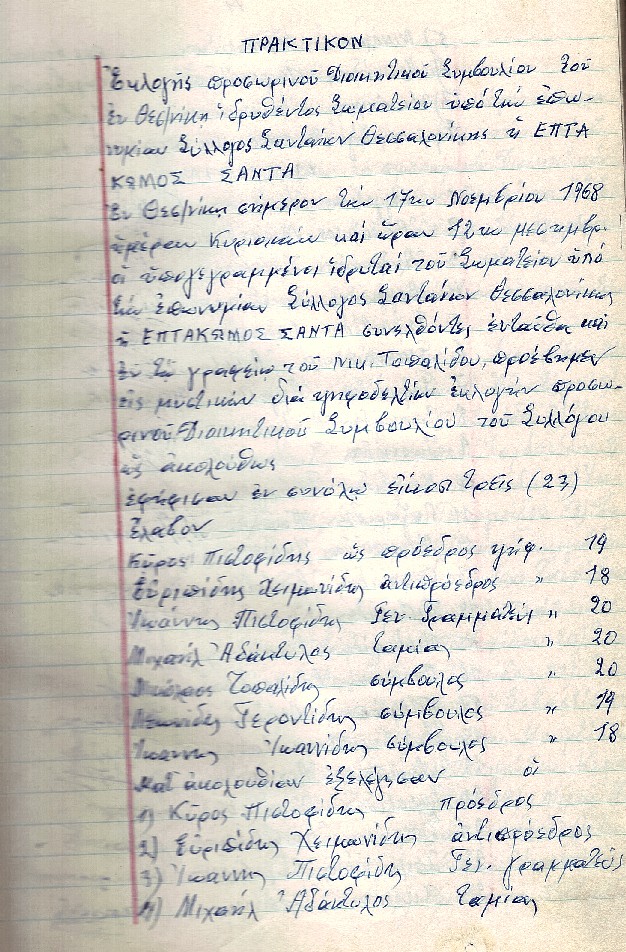 ΠΡΑΚΤΙΚΟΝ
Ἐκλογῆς προσωρινοῦ Διοικητικοῦ Συμβουλίου τοῦ
ἐν Θεσ/νίκῃ ἱδρυθέντος Σωματείου ὑπό τήν ἐπω-
νυμίαν Σύλλογος Σανταίων Θεσσαλονίκης ἡ ΕΠΤΑ
ΚΩΜΟΣ ΣΑΝΤΑ
Ἐν Θεσ/νίκῃ σήμερον τήν 17ην Νοεμβρίου 1968
ἡμέραν Κυριακήν καί ὥραν 12ην μεσημβρ.
οἱ ὑπογεγραμμένοι ἱδρυταί τοῦ Σωματείου ὑπό
τήν ἐπωνυμίαν Σύλλογος Σανταίων Θεσσαλονίκης
ἡ ΕΠΤΑΚΩΜΟΣ ΣΑΝΤΑ συνελθόντες ἐνταῦθα καί
ἐν τῷ γραφείῳ τοῦ Νικ. Τοπαλίδου, προέβημεν
εἰς μυστικήν διά ψηφοδελτίων ἐκλογήν προσω-
ρινοῦ Διοικητικοῦ Συμβουλίου τοῦ Συλλόγου
ὡς ἀκολούθως
ἐψήφισαν ἐν συνόλῳ εἴκοσι τρεῖς (23)
Ἔλαβον
Κῦρος Πιστοφίδης ὡς πρόεδρος ψήφ. 19
Εὐριπίδης Χειμωνίδης ἀντιπρόεδρος " 18
Ἰωάννης Πιστοφίδης Γεν. Γραμματεύς " 20
Μιχαήλ Ἀδάκτυλος ταμίας " 20
Νικόλαος Τοπαλίδης σύμβουλος " 20
Λεωνίδας Γεροντίδης σύμβουλος " 19
Ἰωάννης Ἰωαννίδης σύμβουλος " 18
Κατ' ἀκολουθίαν ἐξελέγησαν οἱ
1) Κῦρος Πιστοφίδης πρόεδρος
2) Εὐριπίδης Χειμωνίδης ἀντιπρόεδρος
3) Ἰωάννης Πιστοφίδης Γεν. γραμματεύς
4) Μιχαήλ Ἀδάκτυλος ταμίας